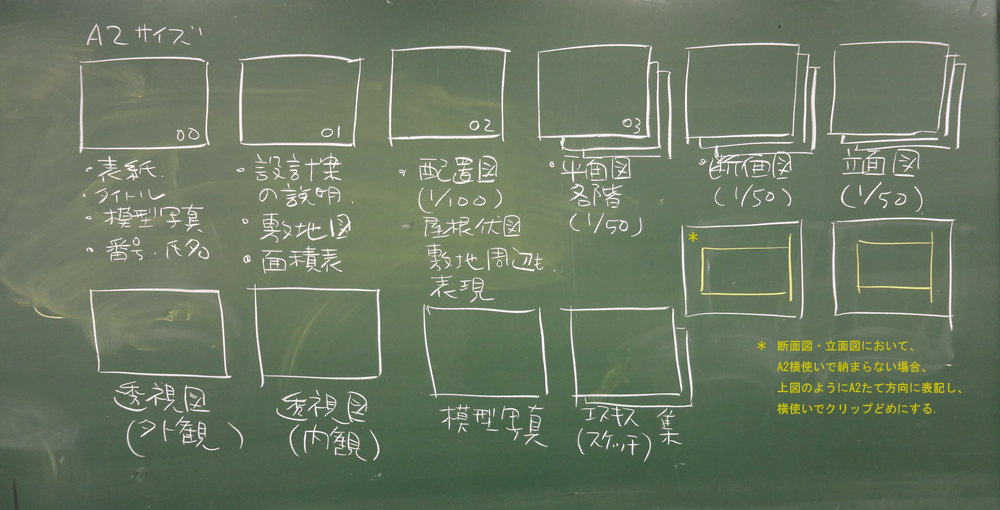 A2サイズ
00
・表紙.
・タイトル
・模型写真
・番号.氏名
01
・設計案
の説明.
・敷地図
・面積表
02
・配置図
(1/100)
屋根伏図
敷地周辺も.
表現
03
・平面図
各階
(1/50)
・断面図
(1/50)
立面図
(1/50)
*
* 断面図・立面図において、
A2横使いで納まらない場合、
上図のようにA2たて方向に表記し、
横使いでクリップどめにする.
透視図
(外観)
透視図
(内観)
模型写真
エスキス集
(スケッチ)